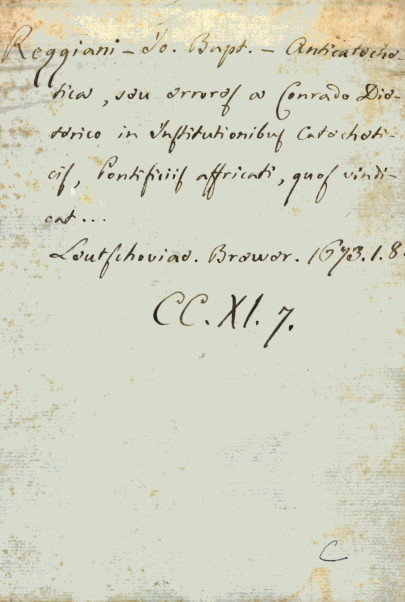 Reggiani – Io. Bapt. – Anticateche-
ticae, seu errores a Conrado Die-
terico in Institutionibus Cateche ti-
cis, Pontificiis affricati, quos vindi-
cat...
Leutschoviae. Brewer. 1673. 1. 8.
CC. XI. 7.
C